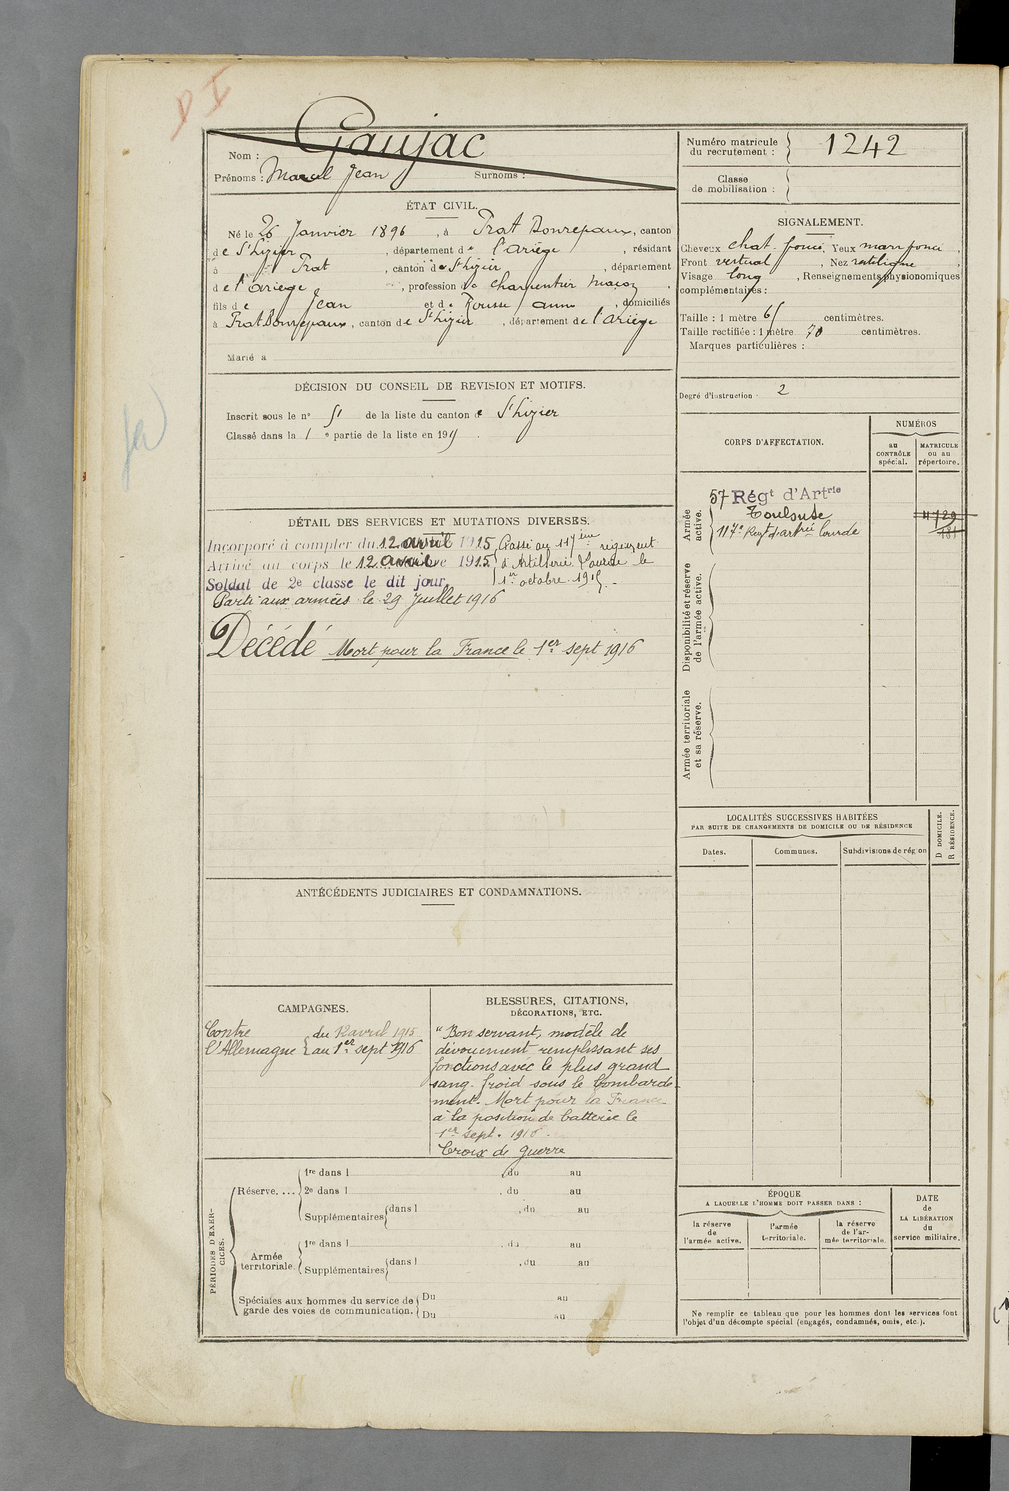 D I
Gaujac
Nom :
Prénoms : Marcel Jean Surnoms :
Numéro matricule du recrutement : 1242
Classe de mobilisation :
ÉTAT CIVIL.
Né le 26 Janvier 1896, à Prat Bonrepaux, canton
de St Lizier, département de l'ariège, résidant
à Prat, canton de St Lizier, département
de l'ariège, profession de charpentier maçon,
fils de Jean et de anne, domiciliés
à Prat Bonrepaux, canton de St Lizier, département de l'ariège
Marié à
SIGNALEMENT.
Cheveux chat. foncé, Yeux marr foncé,
Front vertical, Nez rectiligne,
Visage long, Renseignements physionomiques
complémentaires :
Taille : 1 mètre centimètres.
Taille rectifiée : 1 mètre 70 centimètres.
Marques particulières :
Degré d'instruction · 2
DÉCISION DU CONSEIL DE REVISION ET MOTIFS.
Inscrit sous le n° de la liste du canton de St Lizier
Classé dans la 1 e partie de la liste en 191
CORPS D'AFFECTATION.
NUMÉROS
au CONTRÔLE spécial.
MATRICULE ou au répertoire.
Armée active.
57 Régt d'Artrie
Toulouse
117e Regt d'artrie lourde
Disponibilité et réserve de l'armée active.
Armée territoriale et sa réserve.
DÉTAIL DES SERVICES ET MUTATIONS DIVERSES.
Incorporé à compter du 12 avril 1915
Arrivé au corps le 12 avril 1915
Soldat de 2e classe le dit jour.
Passé au 117ème régiment
d'Artillerie Lourde le
1er octobre 1915.
Parti aux armées le 29 juillet 1916
Décédé Mort pour la France le 1er sept 1916
LOCALITÉS SUCCESSIVES HABITÉES
PAR SUITE DE CHANGEMENTS DE DOMICILE OU DE RÉSIDENCE
Dates. Communes. Subdivisions de région
D DOMICILE.
R RÉSIDENCE.
ANTÉCÉDENTS JUDICIAIRES ET CONDAMNATIONS.
CAMPAGNES.
Contre l'Allemagne
du 12 avril 1915
au 1er sept 1916
BLESSURES, CITATIONS,
DÉCORATIONS, ETC.
"Bon servant, modèle de
dévouement remplissant ses
fonctions avec le plus grand
sang-froid sous le bombarde-
ment. Mort pour la France
à la position de batterie le
1er sept. 1916.
Croix de guerre
PÉRIODES D'EXERCICES.
Réserve....
1re dans l du au
2e dans l , du au
Supplémentaires dans l , du au
Armée territoriale.
1re dans l , du au
Supplémentaires dans l , du au
Spéciales aux hommes du service de
garde des voies de communication.
Du au
Du au
ÉPOQUE
A LAQUELLE L'HOMME DOIT PASSER DANS :
la réserve de l'armée active.
l'armée territoriale.
la réserve de l'armée territoriale.
DATE de LA LIBÉRATION du service militaire.
Ne remplir ce tableau que pour les hommes dont les services font
l'objet d'un décompte spécial (engagés, condamnés, omis, etc.).